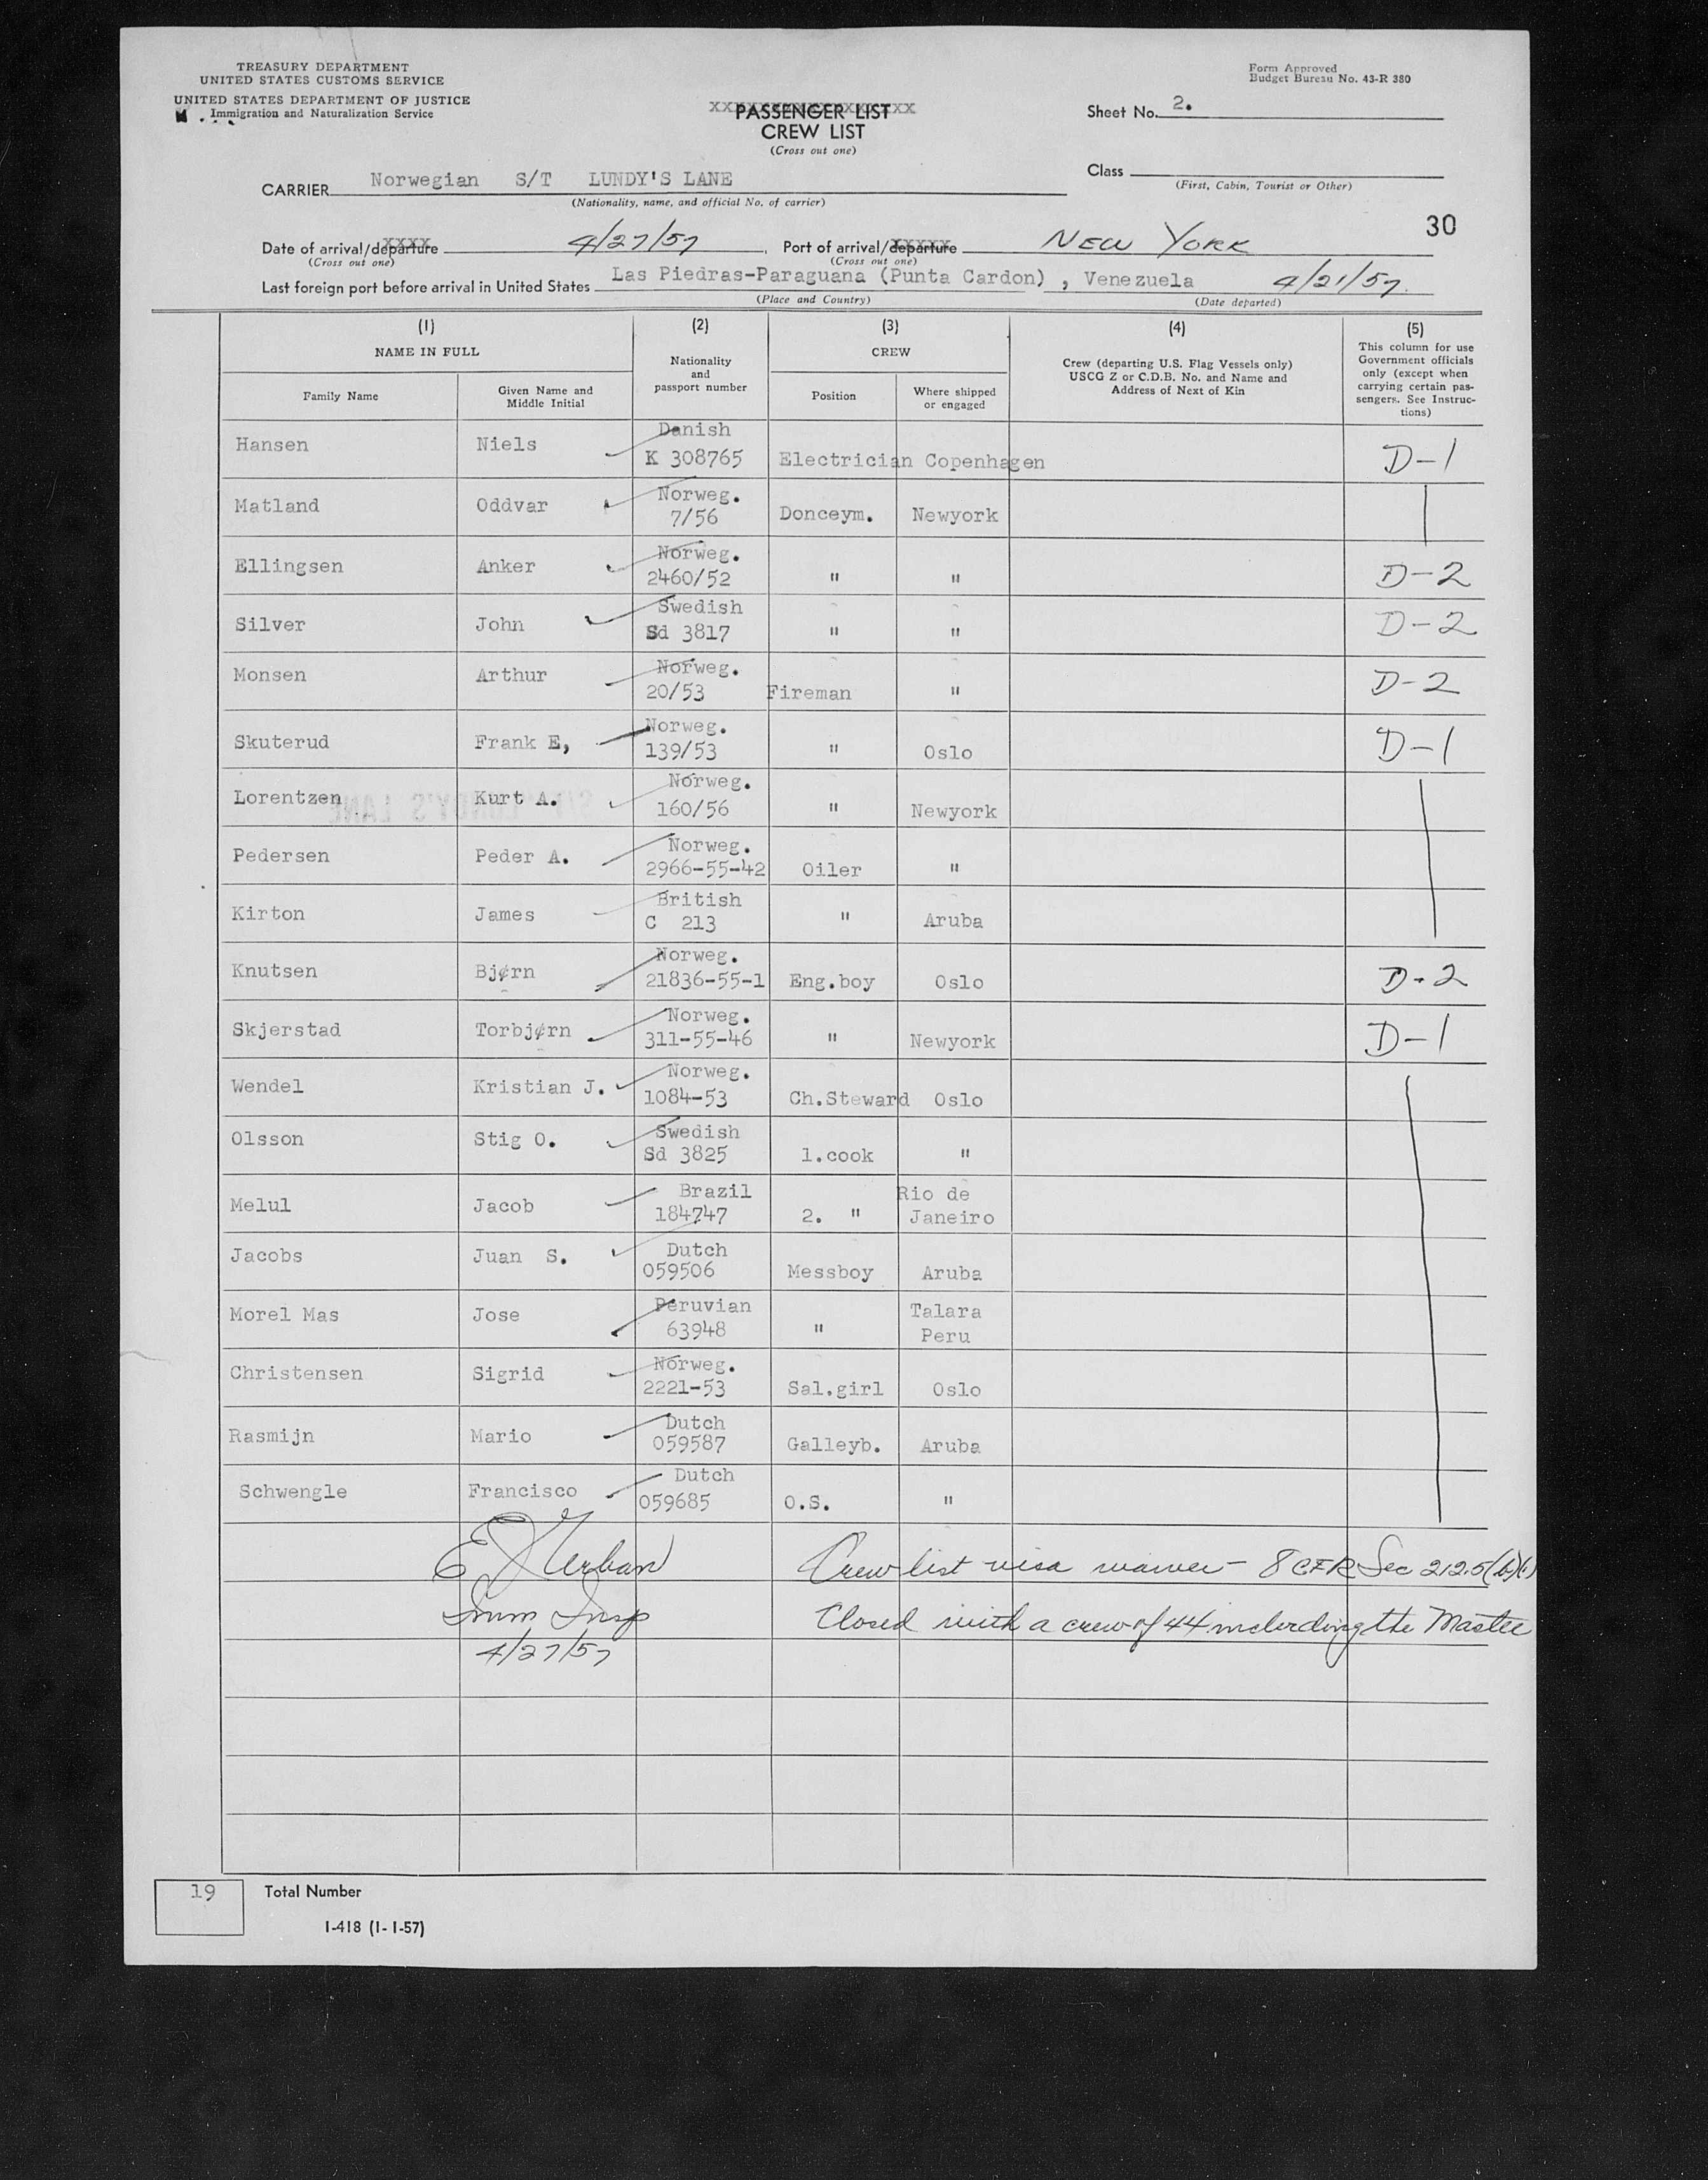 TREASURY DEPARTMENT
UNITED STATES CUSTOMS SERVICE
UNITED STATES DEPARTMENT OF JUSTICE
Immigration and Naturalization Service
Form Approved
Budget Bureau No. 43-R 380
PASSENGER LIST
CREW LIST
(Cross out one)
Sheet No. 2.
Class
(First, Cabin, Tourist or Other)
CARRIER Norwegian S/T LUNDY'S LANE
(Nationality, name, and official No. of carrier)
30
Date of arrival/departure 4/27/57, Port of arrival/departure NEW YORK
(Cross out one) (Cross out one)
Last foreign port before arrival in United States Las Piedras-Paraguana (Punta Cardon) , Venezuela 4/21/57.
(Place and Country) (Date departed)
(1) (2) (3) (4) (5)
NAME IN FULL
Family Name
Given Name and
Middle Initial
Nationality
and
passport number
CREW
Position
Where shipped
or engaged
Crew (departing U.S. Flag Vessels only)
USCG Z or C.D.B. No. and Name and
Address of Next of Kin
This column for use
Government officials
only (except when
carrying certain pas-
sengers. See Instruc-
tions)
Hansen Niels Danish
K 308765 Electrician Copenhagen D-1
Matland Oddvar Norweg.
7/56 Donceym. Newyork
Ellingsen Anker Norweg.
2460/52 " " D-2
Silver John Swedish
Sd 3817 " " D-2
Monsen Arthur Norweg.
20/53 Fireman " D-2
Skuterud Frank E, Norweg.
139/53 " Oslo D-1
Lorentzen Kurt A. Norweg.
160/56 " Newyork
Pedersen Peder A. Norweg.
2966-55-42 Oiler "
Kirton James British
C 213 " Aruba
Knutsen Bjørn Norweg.
21836-55-1 Eng.boy Oslo D-2
Skjerstad Torbjørn Norweg.
311-55-46 " Newyork D-1
Wendel Kristian J. Norweg.
1084-53 Ch.Steward Oslo
Olsson Stig O. Swedish
Sd 3825 1.cook "
Melul Jacob Brazil Rio de
184747 2. " Janeiro
Jacobs Juan S. Dutch
059506 Messboy Aruba
Morel Mas Jose Peruvian Talara
63948 " Peru
Christensen Sigrid Norweg.
2221-53 Sal.girl Oslo
Rasmijn Mario Dutch
059587 Galleyb. Aruba
Schwengle Francisco Dutch
059685 O.S. "
Urban Crew list visa waiver - 8 CFR Sec 212.5(b)(1)
Imm Insp Closed with a crew of 44 including the Master
4/27/57
19 Total Number
I-418 (1-1-57)